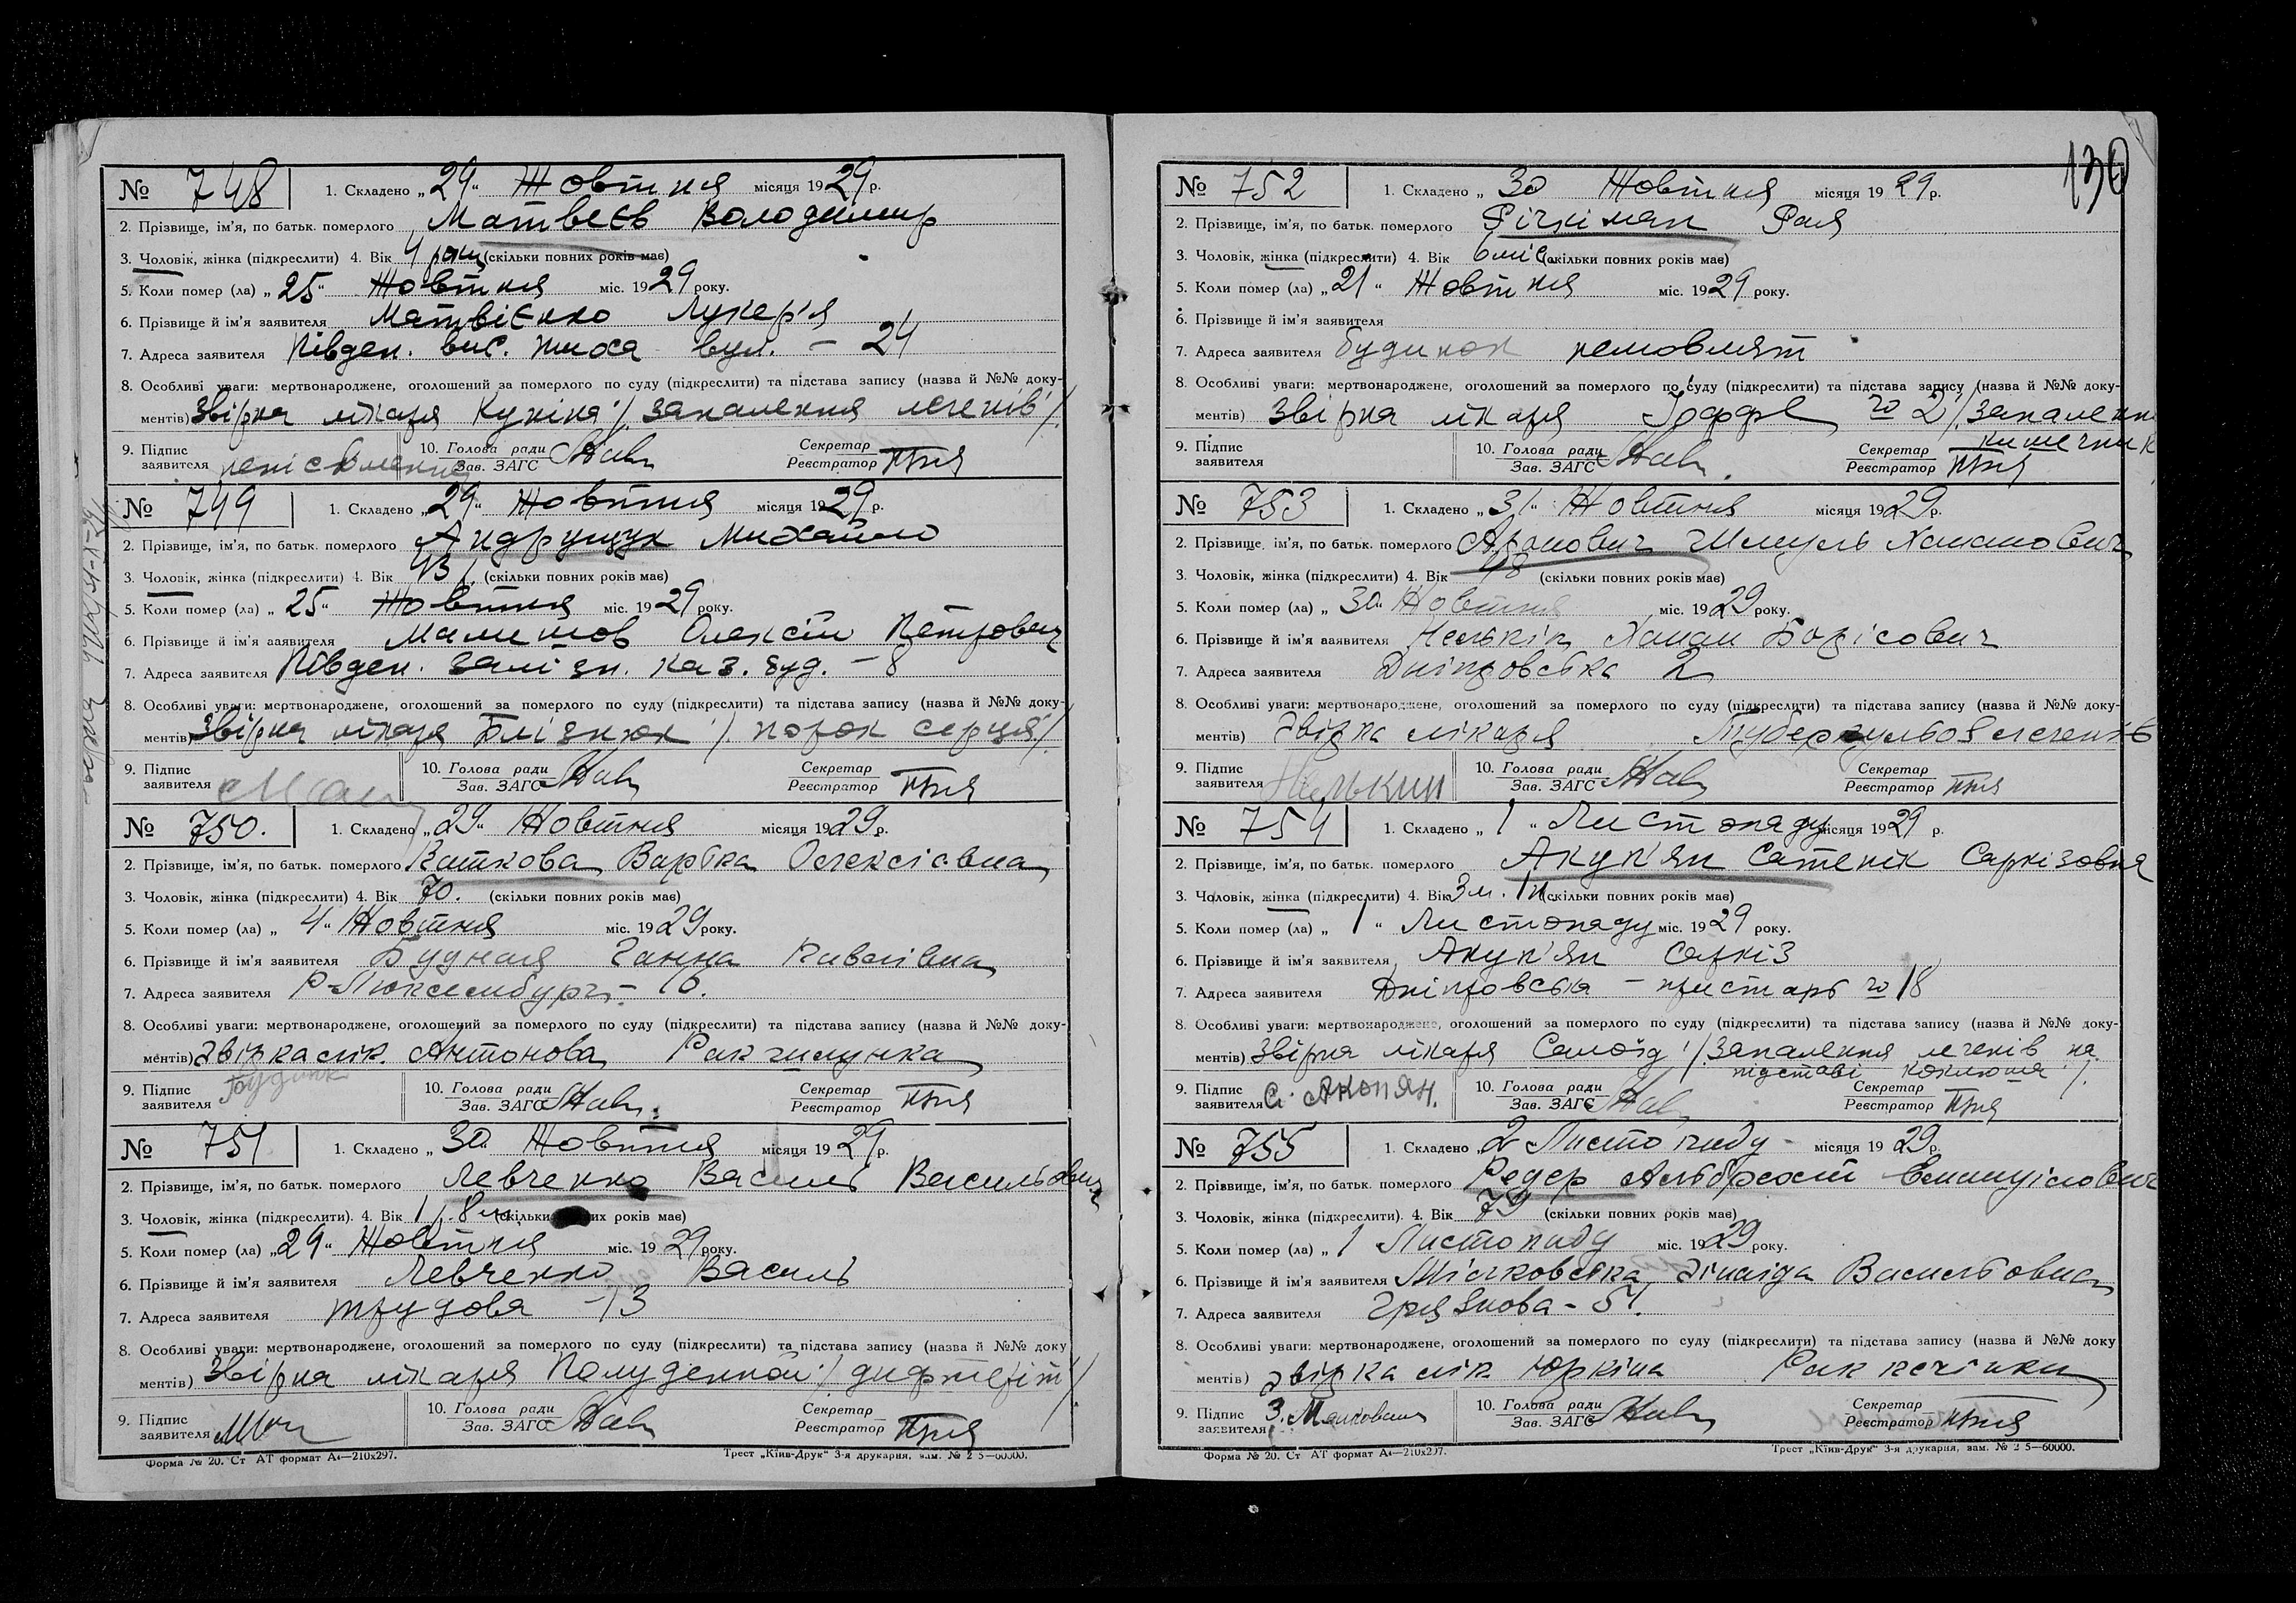 № 748 1. Складено „29“ Жовтня місяця 1929 р.
2. Прізвище, ім'я, по батьк. померлого Матвеєв Володимир
3. Чоловік, жінка (підкреслити) 4. Вік 4 роки (скільки повних років має)
5. Коли помер (ла) „25“ Жовтня міс. 1929 року.
6. Прізвище й ім'я заявителя Матвієнко Лукер'я
7. Адреса заявителя Півден. вис. тиха вул. – 24
8. Особливі уваги: мертвонароджене, оголошений за померлого по суду (підкреслити) та підстава запису (назва й №№ доку-
ментів) Звірка лікаря Куніна /. запалення легенів /.
9. Підпис заявителя неписьменна 10. Голова ради Зав. ЗАГС Секретар Реєстратор
№ 749 1. Складено „29“ Жовтня місяця 1929 р.
2. Прізвище, ім'я, по батьк. померлого Андрущук Михайло
3. Чоловік, жінка (підкреслити) 4. Вік 43 (скільки повних років має)
5. Коли помер (ла) „25“ Жовтня міс. 1929 року.
6. Прізвище й ім'я заявителя Олексій Петрович
7. Адреса заявителя Півден. залізн. каз. буд. – 8
8. Особливі уваги: мертвонароджене, оголошений за померлого по суду (підкреслити) та підстава запису (назва й №№ доку-
ментів) Звірка лікаря Блізнюк /. порок серця /.
9. Підпис заявителя 10. Голова ради Зав. ЗАГС Секретар Реєстратор
№ 750. 1. Складено „29“ Жовтня місяця 1929 р.
2. Прізвище, ім'я, по батьк. померлого Каткова Варвка Олексієвна
3. Чоловік, жінка (підкреслити) 4. Вік 70. (скільки повних років має)
5. Коли помер (ла) „4“ Жовтня міс. 1929 року.
6. Прізвище й ім'я заявителя Ганна
7. Адреса заявителя Р-Люксембург – 10.
8. Особливі уваги: мертвонароджене, оголошений за померлого по суду (підкреслити) та підстава запису (назва й №№ доку-
ментів) звірка лік. Антонова Рак шлунка
9. Підпис заявителя 10. Голова ради Зав. ЗАГС Секретар Реєстратор
№ 751 1. Складено „30 Жовтня місяця 1929 р.
2. Прізвище, ім'я, по батьк. померлого Левченко Василь Васильович
3. Чоловік, жінка (підкреслити). 4. Вік 1 р. 8 м. (скільки повних років має)
5. Коли помер (ла) „29“ Жовтня міс. 1929 року.
6. Прізвище й ім'я заявителя Левченко Василь
7. Адреса заявителя трудова – 13
8. Особливі уваги: мертвонароджене, оголошений за померлого по суду (підкреслити) та підстава запису (назва й №№ доку
ментів) Звірка лікаря Полуденной /. дифтеріт /.
9. Підпис заявителя 10. Голова ради Зав. ЗАГС Секретар Реєстратор
Форма № 20. Ст АТ формат А4—210x297. Трест „Київ-Друк“ 3-я друкарня, зам. № 2 5—60000.
130
№ 752 1. Складено „30 Жовтня місяця 1929 р.
2. Прізвище, ім'я, по батьк. померлого Рая
3. Чоловік, жінка (підкреслити) 4. Вік 6 міс. (скільки повних років має)
5. Коли помер (ла) „21“ Жовтня міс. 1929 року.
6. Прізвище й ім'я заявителя
7. Адреса заявителя будинок немовлят
8. Особливі уваги: мертвонароджене, оголошений за померлого по суду (підкреслити) та підстава запису (назва й №№ доку-
ментів) Звірка лікаря Іоффе № 2 /. запаленн
кишечник
9. Підпис заявителя 10. Голова ради Зав. ЗАГС Секретар Реєстратор
№ 753 1. Складено „31“ Жовтня місяця 1929 р.
2. Прізвище, ім'я, по батьк. померлого Аронович Шмуль Хананович
3. Чоловік, жінка (підкреслити) 4. Вік 48 (скільки повних років має)
5. Коли помер (ла) „30“ Жовтня міс. 1929 року.
6. Прізвище й ім'я заявителя Нелькін Ханан Борісович
7. Адреса заявителя Дніпровська 2
8. Особливі уваги: мертвонароджене, оголошений за померлого по суду (підкреслити) та підстава запису (назва й №№ доку-
ментів) Звірка лікаря Туберкульоз легенів
9. Підпис заявителя Нелькин 10. Голова ради Зав. ЗАГС Секретар Реєстратор
№ 754 1. Складено „1“ Листопаду місяця 1929 р.
2. Прізвище, ім'я, по батьк. померлого Акуп'ян Сатенік Саркізовна
3. Чоловік, жінка (підкреслити) 4. Вік 3 м. (скільки повних років має)
5. Коли помер (ла) „1“ Листопаду міс. 1929 року.
6. Прізвище й ім'я заявителя Акуп'ян Саркіз
7. Адреса заявителя Дніпровська – пристань № 18
8. Особливі уваги: мертвонароджене, оголошений за померлого по суду (підкреслити) та підстава запису (назва й №№ доку-
ментів) Звірка лікаря Самоїд /. запалення легенів на
підставі коклюша /.
9. Підпис заявителя С. Акопян. 10. Голова ради Зав. ЗАГС Секретар Реєстратор
№ 755 1. Складено „2 Листопаду – місяця 1929 р.
2. Прізвище, ім'я, по батьк. померлого Редер Альбрехт Емануілович
3. Чоловік, жінка (підкреслити). 4. Вік 79 (скільки повних років має)
5. Коли помер (ла) „1 Листопаду міс. 1929 року.
6. Прізвище й ім'я заявителя Зінаіда Васильовна
7. Адреса заявителя Грязнова – 51.
8. Особливі уваги: мертвонароджене, оголошений за померлого по суду (підкреслити) та підстава запису (назва й №№ доку
ментів) звірка лік Юркіна Рак печінки
9. Підпис заявителя 10. Голова ради Зав. ЗАГС Секретар Реєстратор
Форма № 20. Ст АТ формат А4—210x297. Трест „Київ-Друк“ 3-я друкарня, зам. № 2 5—60000.